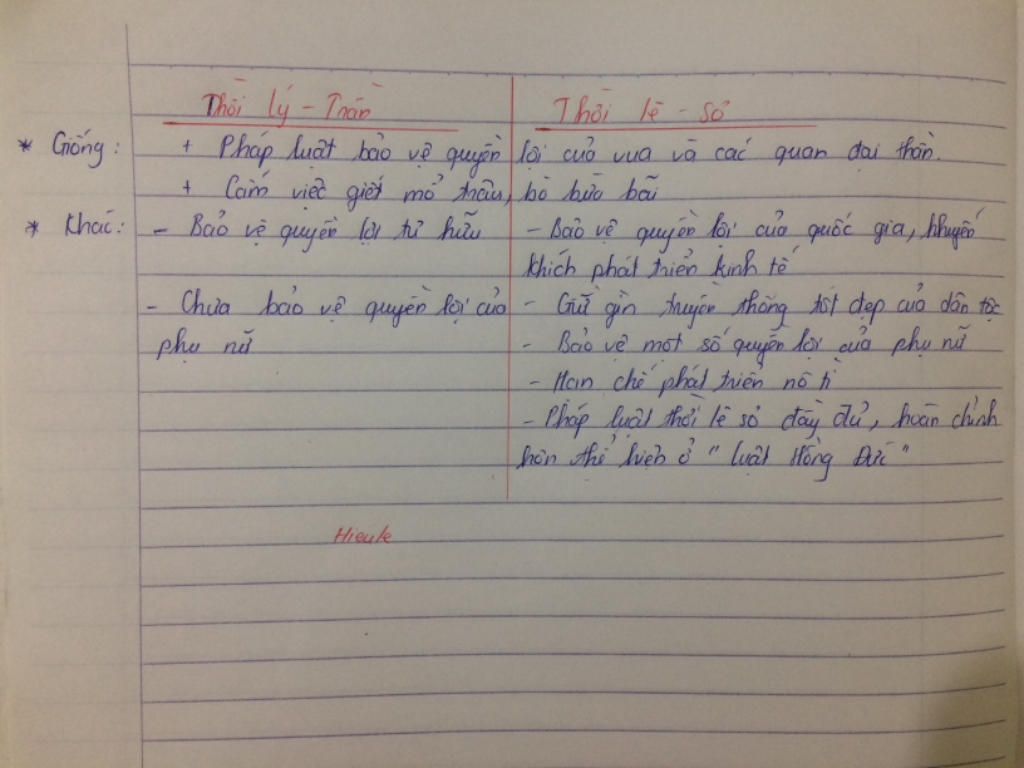 Thời Lý - Trần Thời Lê - Sơ
* Giống: + Pháp luật bảo vệ quyền lợi của vua và các quan đại thần.
+ Cấm việc giết mổ trâu, bò bừa bãi
* Khác: - Bảo vệ quyền lợi tư hữu - Bảo vệ quyền lợi của quốc gia, khuyến
khích phát triển kinh tế
- Chưa bảo vệ quyền lợi của - Giữ gìn truyền thống tốt đẹp của dân tộc
phụ nữ - Bảo vệ một số quyền lợi của phụ nữ
- Hạn chế phát triển nô tì
- Pháp luật thời lê sơ đầy đủ, hoàn chỉnh
hơn thể hiện ở "luật Hồng Đức"
Hieule